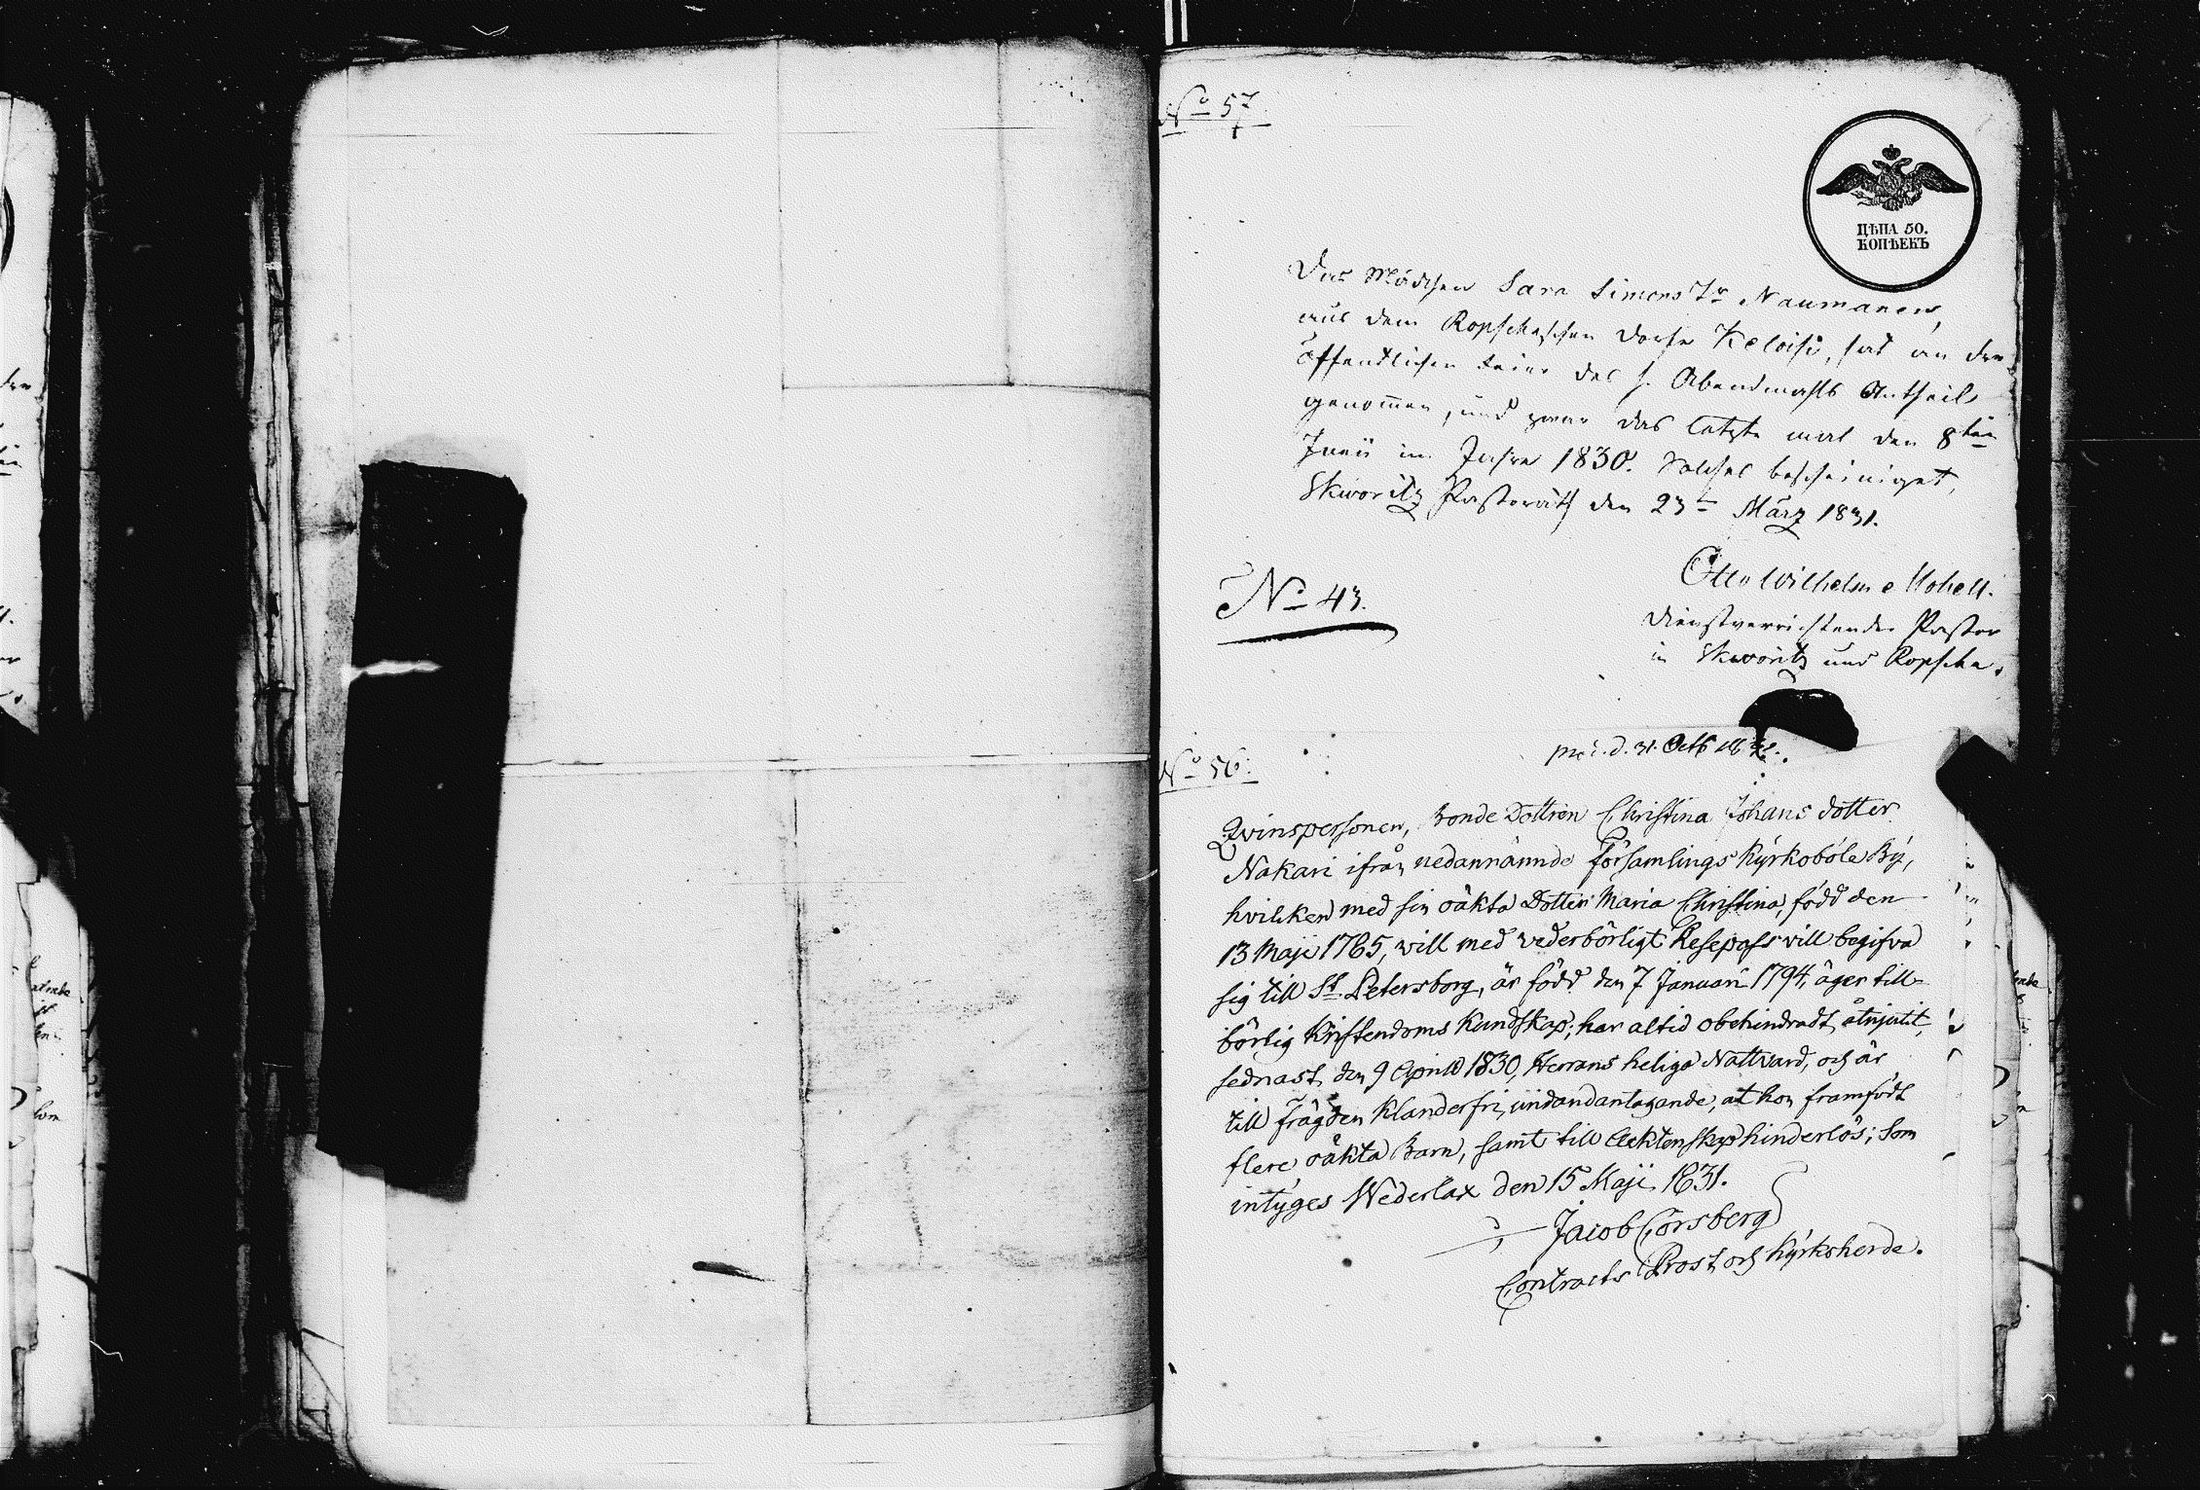 No 57.
ЦѢНА 50.
КОПѢЕКЪ
Das Mädchen Sara Simons Tr Naumanen,
aus dem Ropschaschen Dorfe Keloisi, hat an der
öffentlichen Feier des h. Abendmahls Antheil
genommen, und zwar das letzte mal den 8ten
Junii im Jahre 1830. Solches bescheiniget,
Skworitz Pastorath den 23t März 1831.
Otto Wilhelm
No 43.
Dienstverrichtender Pastor
in Skworitz und Ropscha.
d. 31. Octb
No 56.
Qvinspersonen, Bonde Dottren Christina Johans dotter
Nakari ifrån nedannämnde församlings Kyrkoböle By,
hvilken med sin oäkta Dotter Maria Christina, född den
13 Maji 1765, will med vederbörligt Resepass vill begifva
sig till St Petersborg, är född den 7 Januari 1794, äger till-
börlig Kristendoms Kundskap; har altid obehindradt åtnjutit,
sednast den 9 April 1830, Herrans heliga Nattvard, och är
till frägden Klanderfri, undandantagande, at hon framfödt
flere oäkta Barn, samt till Aektenskap hinderlös; som
intyges Wederlax den 15 Maji 1831.
Jacob Corsberg
Contracts Prost och Kyrkoherde.